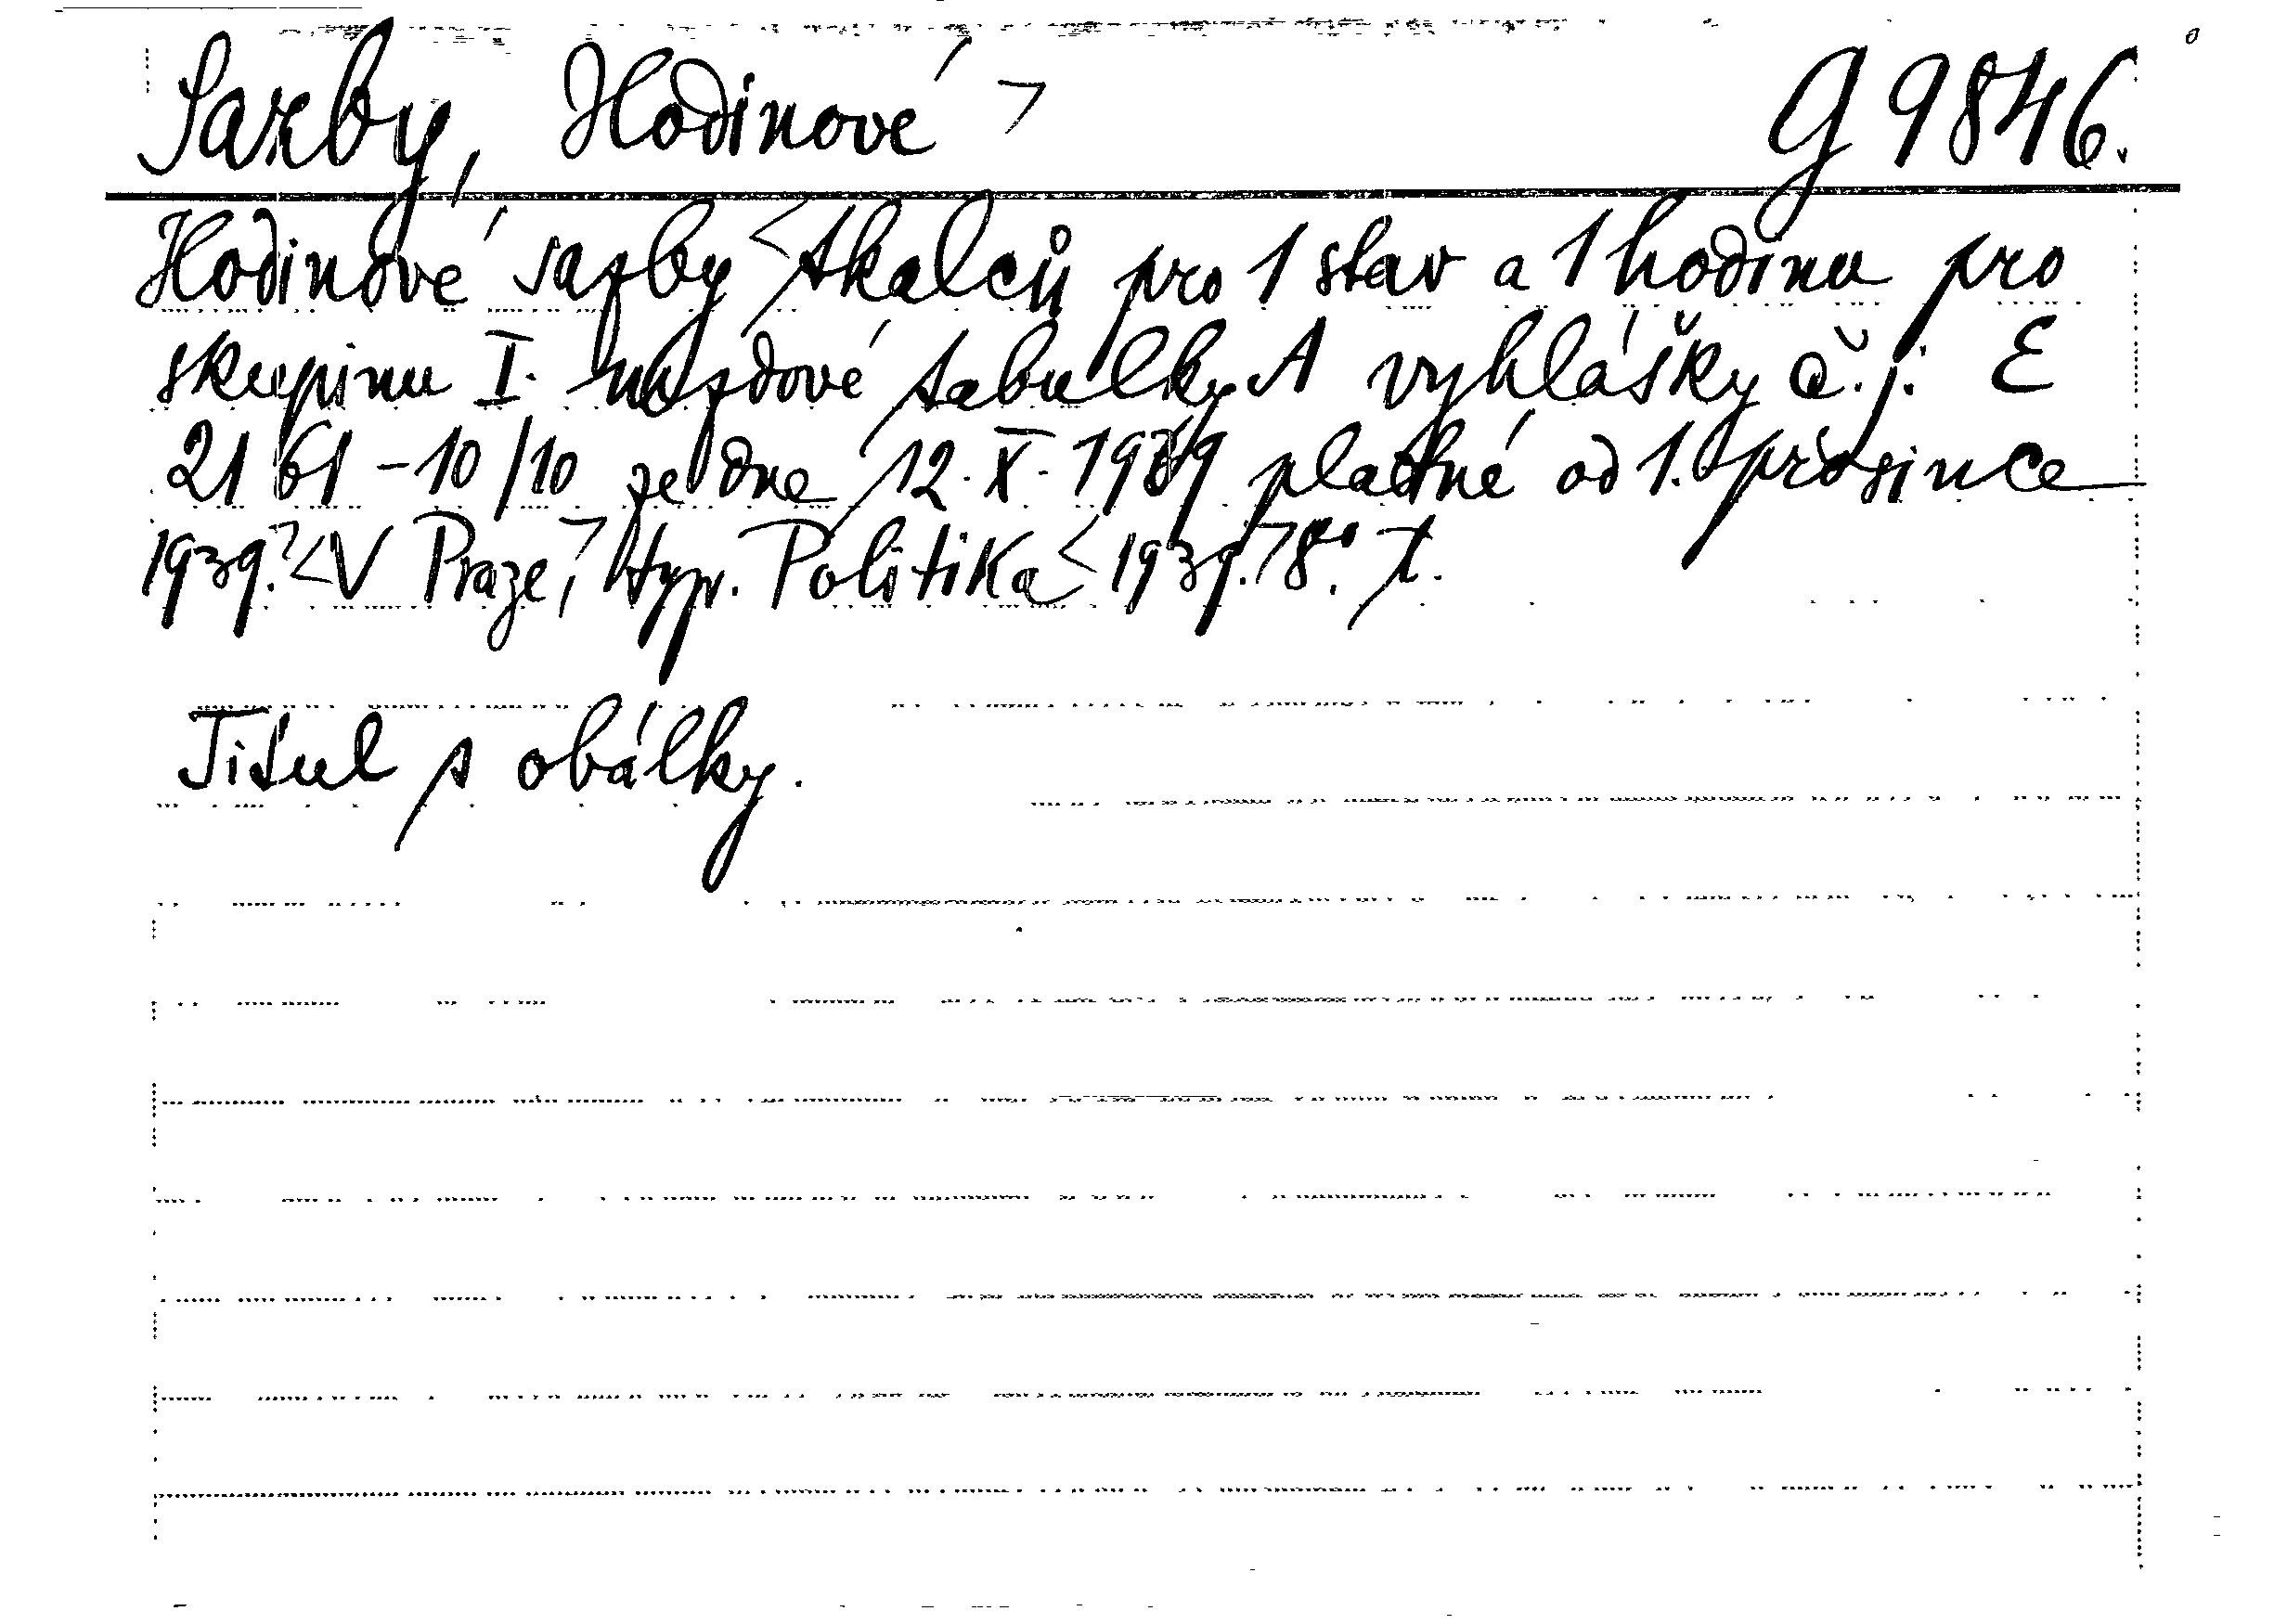 Sazby, Hodinové > G 9846.
Hodinové sazby < tkalců pro 1 stav a 1 hodinu pro
skupinu I. mzdové tabulky A vyhlášky č. j. E
2161-10/10 ze dne 12. X. 1939 platné od 1. prosince
1939.? < V Praze, > typ. Politika < 1939. > 8°. t.
Titul s obálky.